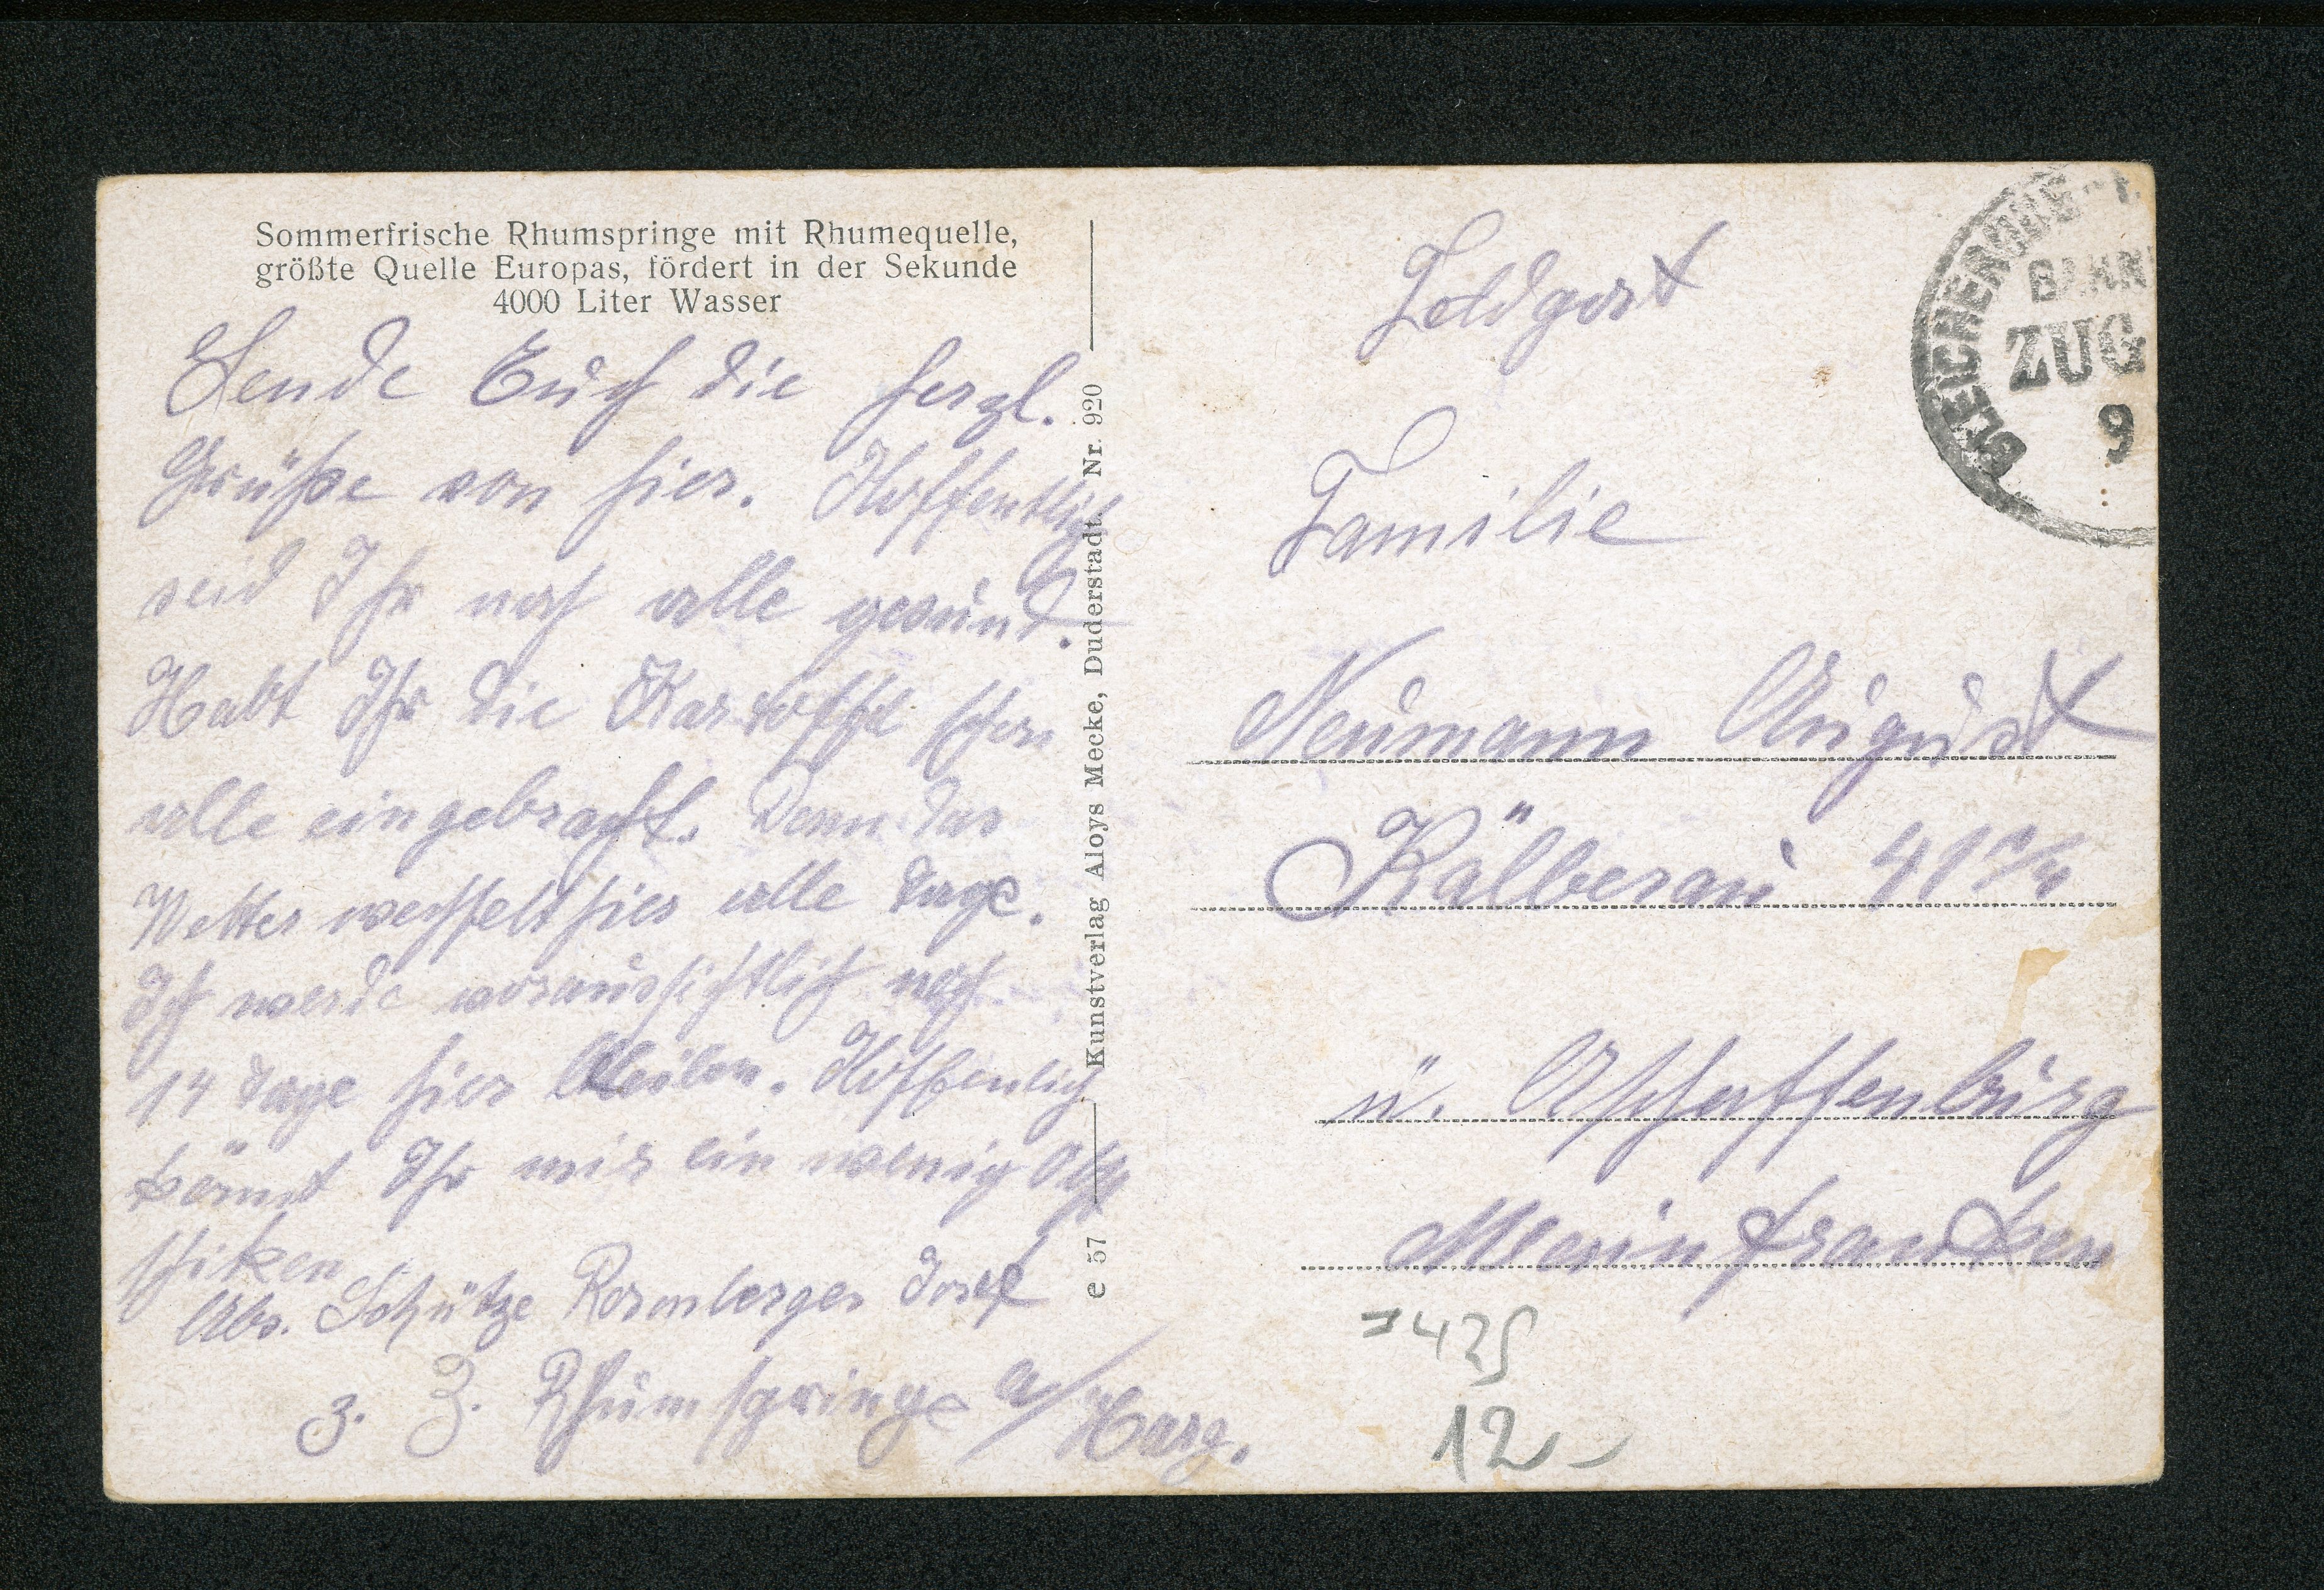 Sommerfrische Rhumspringe mit Rhumequelle,
größte Quelle Europas, fördert in der Sekunde
4000 Liter Wasser
Sende Euch die herzl.
Grüße von hier. Hoffentlich
seid Ihr noch alle gesund.
Habt Ihr die Kartoffel schon
alle eingebracht. Denn das
Wetter wechselt hier alle Tage.
Ich werde voraussichtlich noch
14 Tage hier bleiben. Hoffenlich
könnt Ihr mir ein wenig
schiken
Abs. Schütze Rosenberger Josef
z. Z. Rhumspringe a/Harz.
Kunstverlag Aloys Mecke, Duderstadt. Nr. 920
e 57
Feldpost
Familie
Neumann August
Kälberau 41
ü. Aschaffenburg
Mainfranken
=425
12-
BLEICHERODE
BAHN
ZUG
9